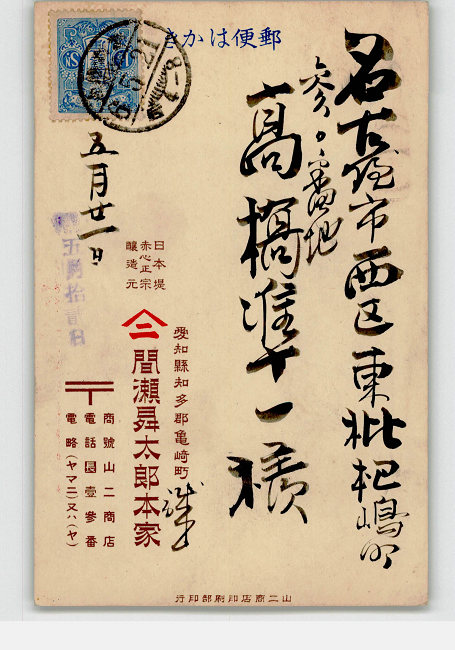 きかは便郵
名古屋市西区東枇杷嶋町
参〇番地
高橋準一様
五月廿一日
日本堤
赤心正宗
醸造元
愛知縣知多郡亀崎町
間瀬舜太郎本家
商號山二商店
電話長壹參番
電略(ヤマニ)又ハ(ヤ)
行印部刷印店商二山